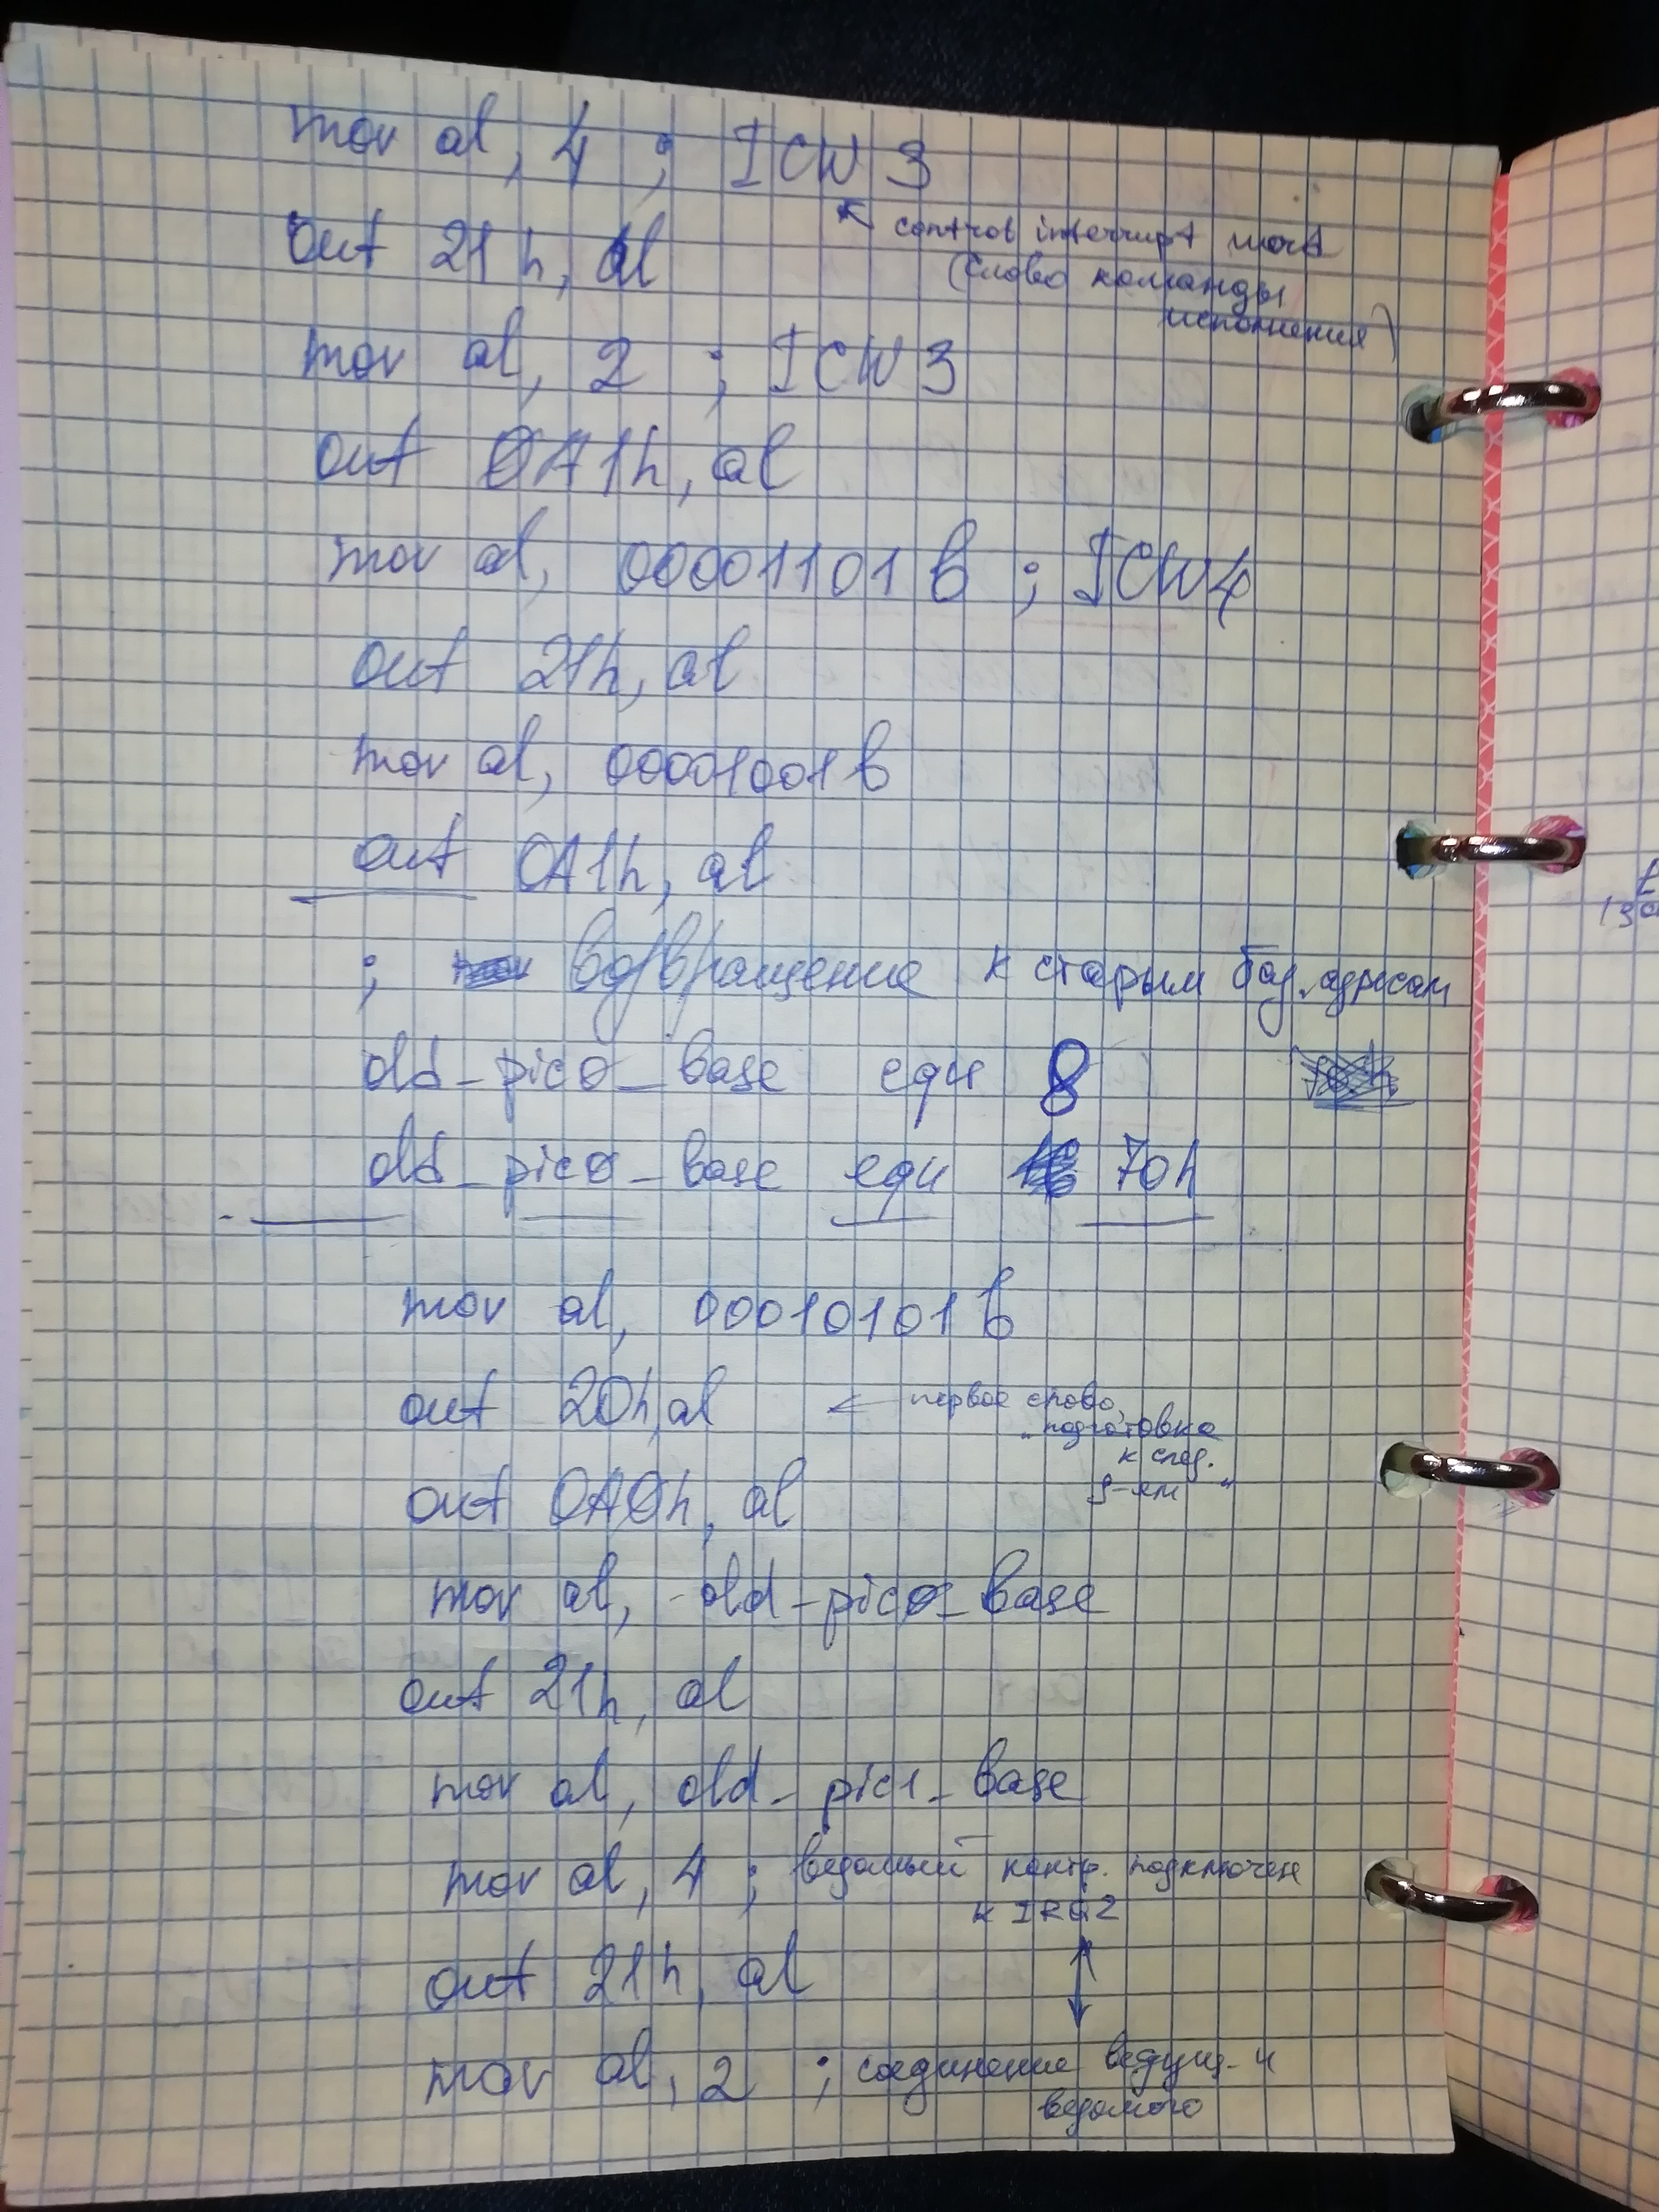 mov al, 4 ; ICW 3
control interrupt word
out 21h, al
(слово команды
исполнения)
mov al, 2 ; ICW 3
out 0A1h, al
mov al, 00001101b ; ICW4
out 21h, al
mov al, 00001001b
out 0A1h, al
; возвращение к старым баз. адресам
old_pic0_base equ 8
old_pic0_base equ 70h
mov al, 00010101b
out 20h, al ← первое слово,
"подготовка
к след.
out 0A0h, al
mov al, old_pic0_base
out 21h, al
mov al, old_pic1_base
mov al, 4 ; ведомый контр. подключен
к IRQ2
out 21h, al
mov al, 2 ; соединение ведущ. и
ведомого